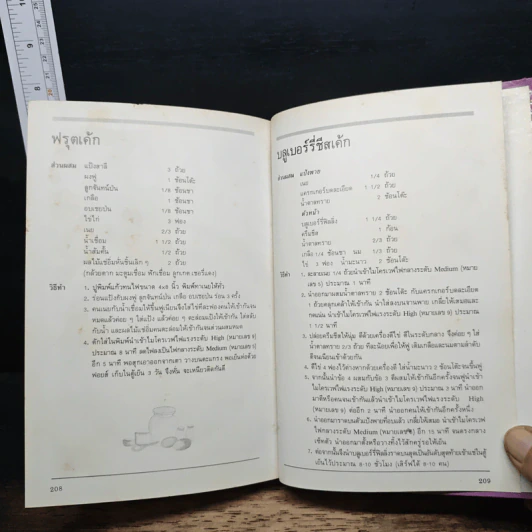 ฟรุตเค้ก
ส่วนผสม แป้งสาลี 3 ถ้วย
ผงฟู 1 ช้อนโต๊ะ
ลูกจันทน์ป่น 1/8 ช้อนชา
เกลือ 1 ช้อนชา
อบเชยป่น 1/8 ช้อนชา
ไข่ไก่ 3 ฟอง
เนย 2/3 ถ้วย
น้ำเชื่อม 1 1/2 ถ้วย
น้ำส้มคั้น 1/2 ถ้วย
ผลไม้แช่อิ่มหั่นชิ้นเล็ก ๆ 2 ถ้วย
(กล้วยตาก มะตูมเชื่อม ฟักเชื่อม ลูกเกด เชอรี่แดง)
วิธีทำ 1. ปูพิมพ์แก้วทนไฟขนาด 4x8 นิ้ว พิมพ์ทาเนยให้ทั่ว
2. ร่อนแป้งกับผงฟู ลูกจันทน์ป่น เกลือ อบเชยป่น ร่อน 3 ครั้ง
3. คนเนยกับน้ำเชื่อมให้ขึ้นฟูเนียนจึงใส่ไข่ไก่ทีละฟอง คนให้เข้ากันจน
หมดแล้วค่อย ๆ ใส่แป้ง แล้วค่อย ๆ ตะล่อมแป้งให้เข้ากัน ใส่สลับ
กับน้ำ และผลไม้แช่อิ่มคนตะล่อมให้เข้ากันจนส่วนผสมหมด
4. ตักใส่ในพิมพ์นำเข้าไมโครเวฟไฟแรงระดับ High (หมายเลข 9)
ประมาณ 8 นาที ลดไฟลงเป็นไฟกลางระดับ Medium (หมายเลข 5)
อีก 5 นาทีสุกเอาออกจากเตา วางบนตะแกรง พอเย็นห่อด้วย
ฟอยล์ เก็บในตู้เย็น 3 วัน จึงหั่น จะเหนียวติดกันดี
208
บลูเบอร์รี่ชีสเค้ก
ส่วนผสม แป้งพาย
เนย 1/4 ถ้วย
แครกเกอร์บดละเอียด 1 1/2 ถ้วย
น้ำตาลทราย 2 ช้อนโต๊ะ
ตัวหน้า
บลูเบอร์รี่ฟิลลิ่ง 1 1/4 ถ้วย
ครีมชีส 1 ก้อน
น้ำตาลทราย 2/3 ถ้วย
เกลือ 1/4 ช้อนชา นม 1/3 ถ้วย
ไข่ 3 ฟอง น้ำมะนาว 2 ช้อนโต๊ะ
วิธีทำ 1. ละลายเนย 1/4 ถ้วยนำเข้าไมโครเวฟไฟกลางระดับ Medium (หมาย
เลข 5) ประมาณ 1 นาที
2. นำออกมาผสมน้ำตาลทราย 2 ช้อนโต๊ะ กับแครกเกอร์บดละเอียด
1 ถ้วยคลุกเคล้าให้เข้ากัน นำใส่ลงบนจานพาย เกลี่ยให้เสมอและ
กดแน่น นำเข้าไมโครเวฟไฟแรงระดับ High (หมายเลข 9) ประมาณ
1 1/2 นาที
3. ปล่อยครีมชีสให้นุ่ม ตีด้วยเครื่องตีไข่ ตีในระดับกลาง จึงค่อย ๆ ใส่
น้ำตาลทราย 2/3 ถ้วย ทีละน้อยเพื่อให้ฟู เติมเกลือและนมตามลำดับ
ตีจนเนียนเข้าด้วยกัน
4. ตีไข่ 4 ฟองไว้ต่างหากด้วยเครื่องตี ใส่น้ำมะนาว 2 ช้อนโต๊ะจนขึ้นฟู
5. จากนั้นนำข้อ 4 ผสมกับข้อ 3 ตีผสมให้เข้ากันอีกครั้งจนฟูนำเข้า
ไมโครเวฟไฟแรงระดับ High (หมายเลข 9) ประมาณ 3 นาที นำออก
มาตีหรือคนจนเข้ากันแล้วนำเข้าไมโครเวฟไฟแรงระดับ High
(หมายเลข 9) ต่ออีก 2 นาที นำออกคนให้เข้ากันอีกครั้งหนึ่ง
6. นำออกมาราดบนตัวแป้งพายที่อบแล้ว เกลี่ยให้เสมอ นำเข้าไมโครเวฟ
ไฟกลางระดับ Medium (หมายเลข 5) อีก 15 นาที จนตรงกลาง
เซ็ทตัว นำออกมาตั้งหรือวางทิ้งไว้สักครู่รอให้เย็น
7. ต่อจากนั้นจึงนำบลูเบอร์รี่ฟิลลิ่งราดบนสุดเป็นอันดับสุดท้ายเข้าแช่ในตู้
เย็นไว้ประมาณ 8-10 ชั่วโมง (เสิร์ฟได้ 8-10 คน)
209